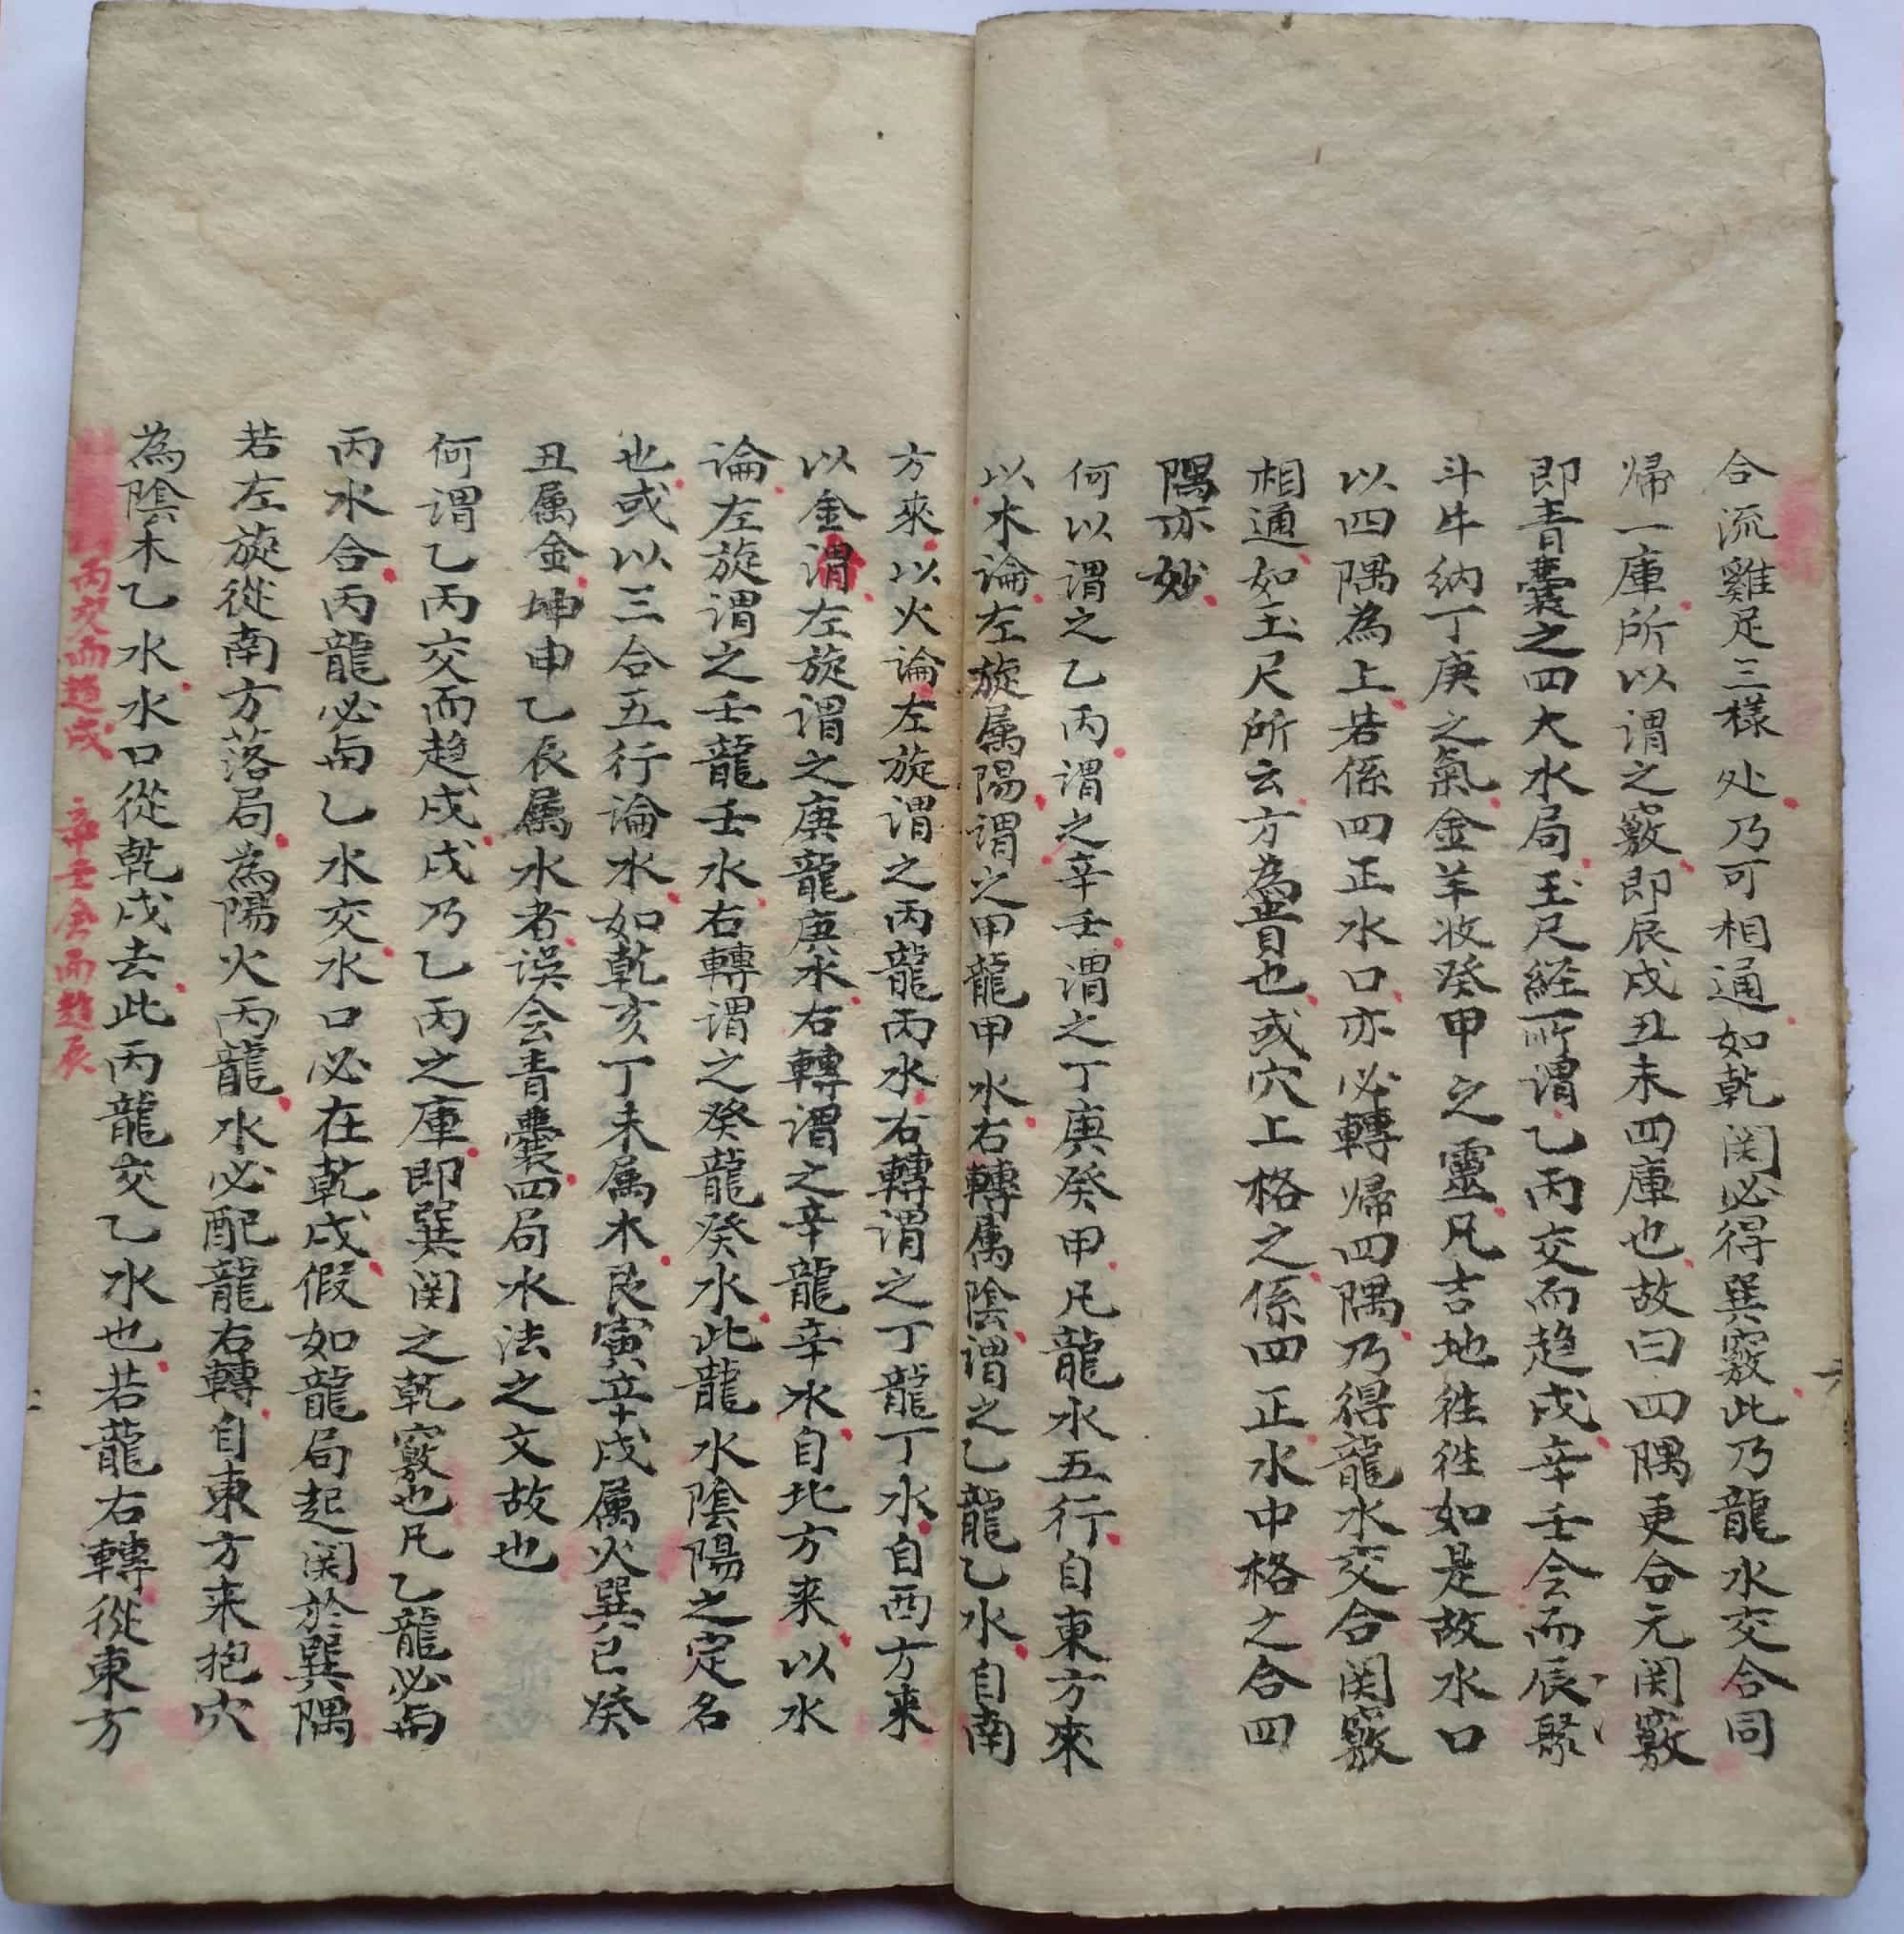 合流雞足三樣处乃可相通如乾関必得巽竅此乃龍水交合同
帰一庫所以謂之竅即辰戌丑未四庫也故曰四隅更合元関竅
即青囊之四大水局玉尺経所謂乙丙交而趋戌辛壬会而辰聚
斗牛納丁庚之氣金羊收癸甲之靈凡吉地徃徃如是故水口
以四隅為上若係四正水口亦必轉帰四隅乃得龍水交合関竅
相通如玉尺所云方為貴也或穴上格之係四正水中格之合四
隅亦妙
何以謂之乙丙謂之辛壬謂之丁庚癸甲凡龍水五行自東方來
以木論左旋属陽謂之甲龍甲水右轉属陰謂之乙龍乙水自南
方來以火論左旋謂之丙龍丙水右轉謂之丁龍丁水自西方来
以金謂左旋謂之庚龍庚水右轉謂之辛龍辛水自北方来以水
論左旋謂之壬龍壬水右轉謂之癸龍癸水此龍水陰陽之定名
也或以三合五行論水如乾亥丁未属木艮寅辛戌属火巽巳癸
丑属金坤申乙辰属水者误会青囊四局水法之文故也
何謂乙丙交而趋戌戌乃乙丙之庫即巽関之乾竅也凡乙龍必与
丙水合丙龍必与乙水交水口必在乾戌假如龍局起関於巽隅
若左旋從南方落局為陽火丙龍水必配龍右轉自東方来抱穴
為陰木乙水水口從乾戌去此丙龍交乙水也若龍右轉從東方
丙交而趋戌 辛壬会而趋辰